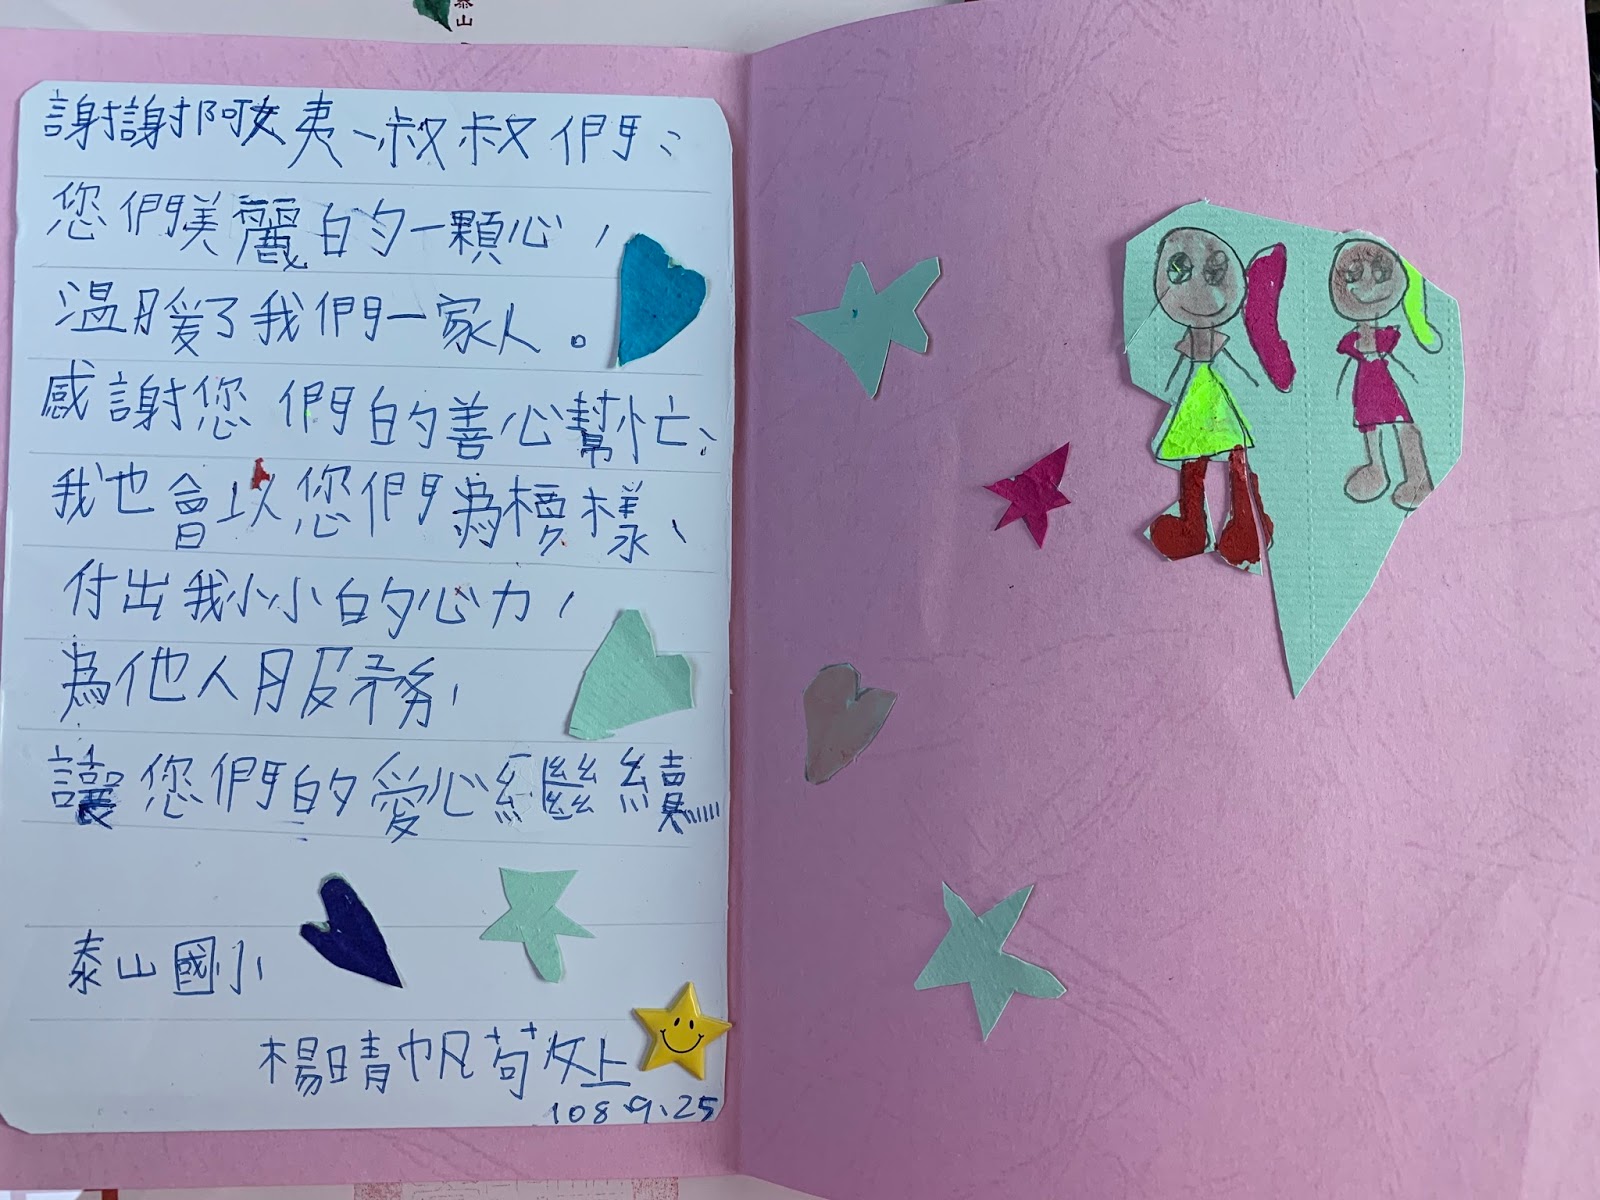 泰山
謝謝阿姨、叔叔們：
您們美麗的一顆心，
溫暖了我們一家人。
感謝您們的善心幫忙、
我也會以您們為模樣、
付出我小小的心力，
為他人服務，
讓您們的愛心繼續......
泰山國小
楊晴帆敬上
108.9.25